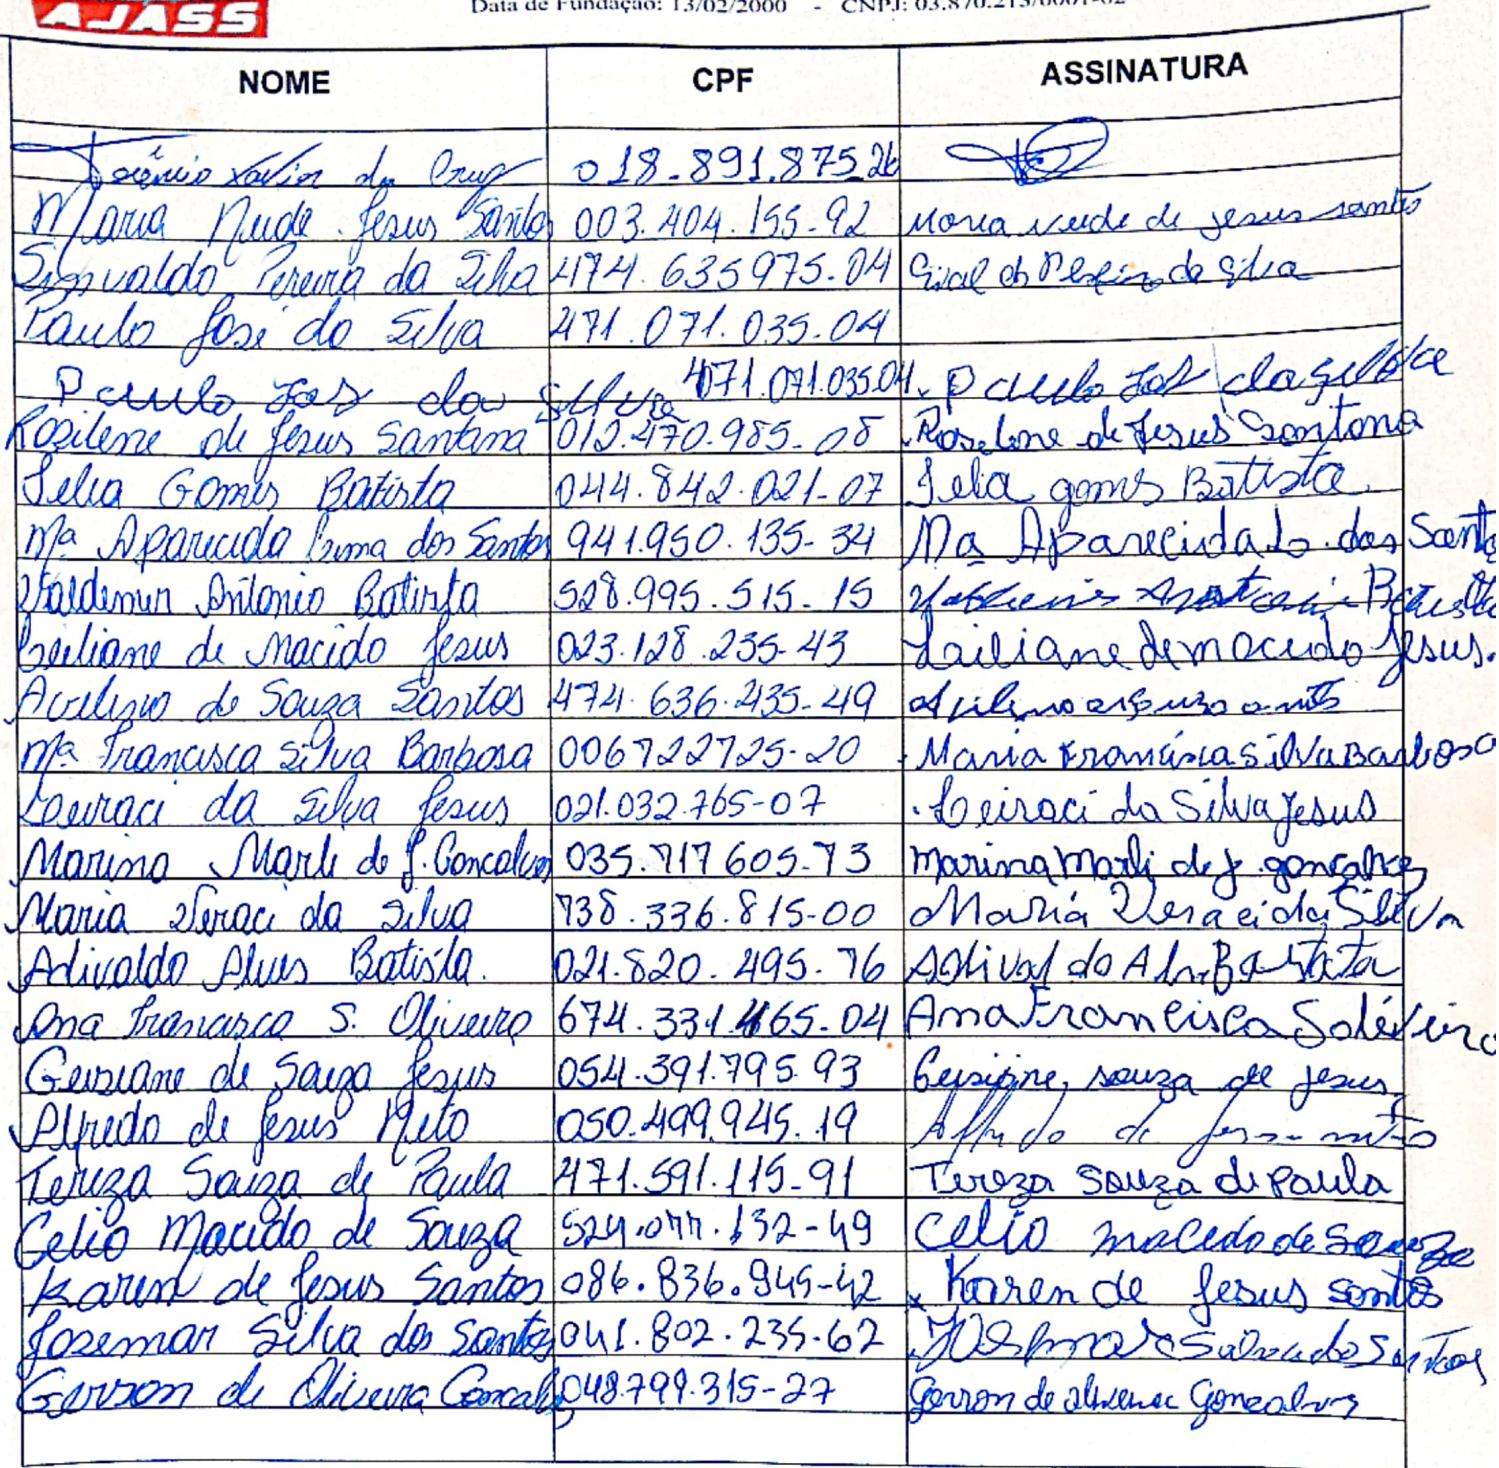 AJASS
Data de Fundação: 13/02/2000 - CNPJ: 03.870.213/0001-02
NOME CPF ASSINATURA
Xavier da Cruz 018.891.875.26
Maria Neide Jesus Santos 003.404.155-92 Maria neide de jesus santos
Sisvaldo Pereira da Silva 474.635975-04 da Silva
Paulo José da Silva 471.071.035-04
Paulo Jos da Silva 471.071.035.04 Paulo Jos da Silva
Rozilene de Jesus Santana 012.470.985-08 Rozilene de Jesus Santana
Gomes Batista 044.842.021-07 gomes Batista
Mª Aparecida Lima dos Santos 941.950.135-34 Mª Aparecida L. dos Santo
Valdemir Antonio Batista 528.995.515-15 Batista
Leiliane de Macedo Jesus 023.128.235-43 Lailiane de macedo Jesus.
Avelino de Souza Santos 474.636.435-49
Mª Francisca Silva Barbosa 006722725-20 Maria Francisca Silva Barbosa
Leuraci da Silva Jesus 021.032.765-07 Leiraci da Silva Jesus
Marina Marli de J. Goncalves 035.717605-73 marina Marli de J. gonçalves
Maria Veraci da Silva 738.336.815-00 Maria Veraci da Silva
Adivaldo Alves Batista. 021.820.495-76 Adivaldo Batista
Ana Francisca S. Oliveira 674.331.465-04 Ana Francisca S Oliveira
Geisiane de Souza Jesus 054.391.795.93 Geisiane, souza de jesus
Alfredo de Jesus Neto 050.499.945.19 Alfredo de Jesus neto
Tereza Souza de Paula 471.591.115-91 Tereza Souza de paula
Celio Macedo de Souza 524.077.132-49 Celio macedo de Souza
Karen de Jesus Santos 086.836.945-42 Karen de Jesus santos
Josemar Silva dos Santos 041.802.235-62 Santos
Gerson de Oliveira Goncalves 048.799.315-27 Gerson de oliveira Goncalves